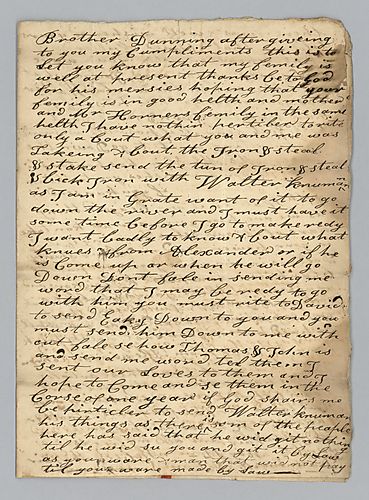 Brother Dunning after giveing
to you my Cumpliments this is to
Let you know that my femily is
well at present thanks be to God
for his mersies hoping that your
femily is in good helth and mother
and Mr Horners femily in the same
helth I have nothin pertiler to rite
only about what you and me was
talking About the Iron & steal
& stake send the tun of Iron & steal
& Eick Iron with Walter
as I am in Grate want of it to go
down the river and I must have it
some time before I go to make redy
I want badly to know About what
knues from Alexander or if he
is Come up or when he will go
Down Dont fale in sending me
word that I may be redy to go
with him you must rite to David
to send Down to you and you
must send him Down to me with
out fale se how Thomas & John is
and send me word to them I
sent our Loves to them and I
hope to Come and se them in the
Corse of one year if God spairs me
be pirticler to send Walter
his things as there som of the people
here has said that he wid git nothing
til he wid su you and git it by Law
as you ware a man that wid not pay
til you ware made by Law